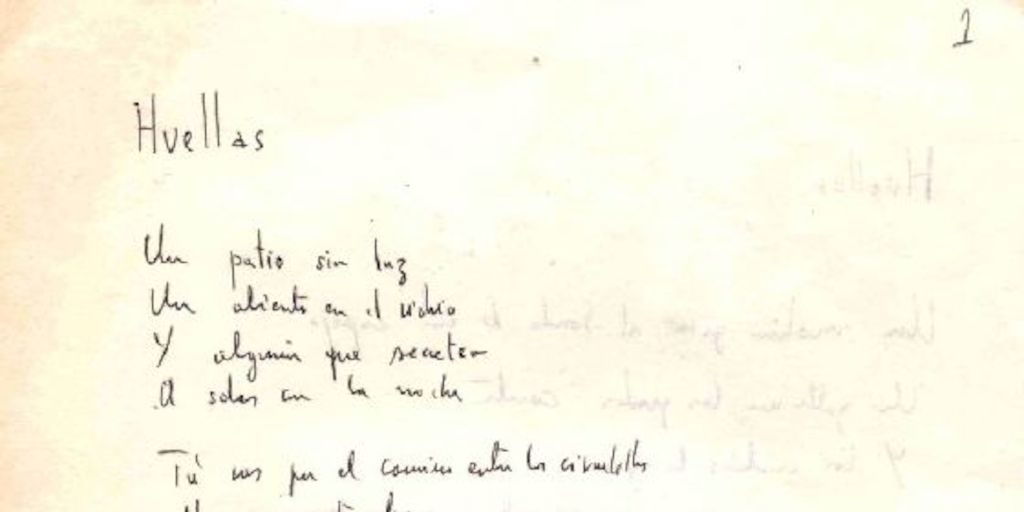 1
Huellas
Un patio sin luz
Un aliento en el vidrio
Y alguien que
A solas en la noche
Tú vas por el camino entre los